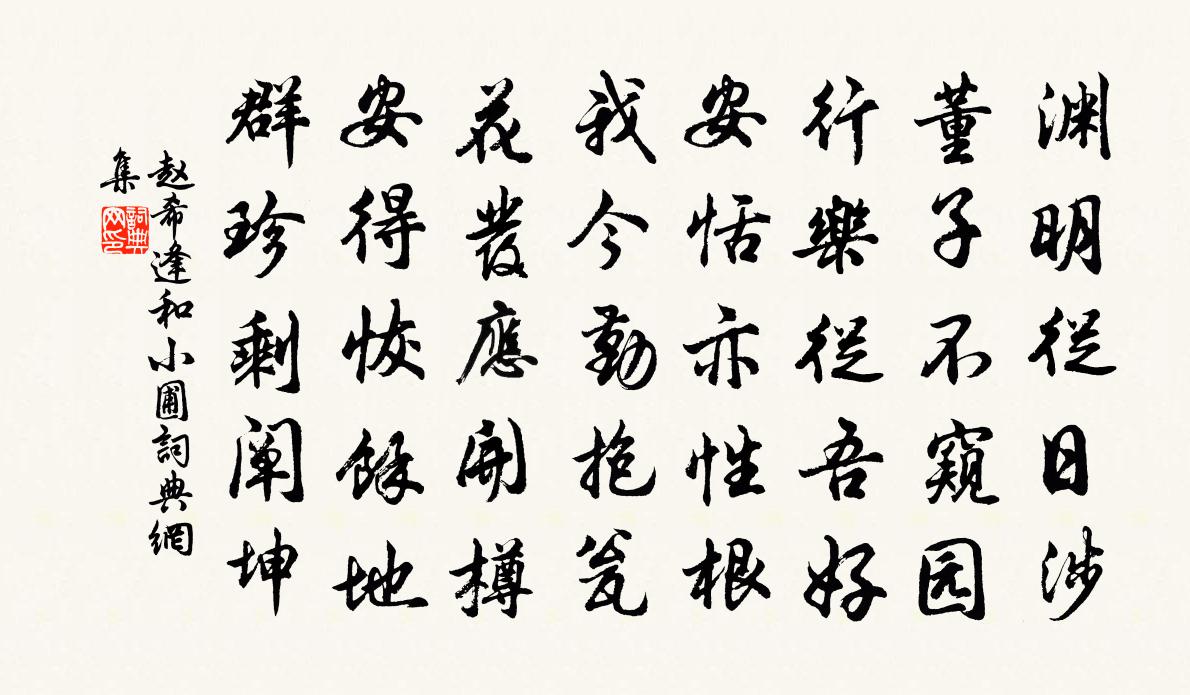 渊明從日涉
董子不窺园
行樂從吾好
安恬亦性根
我今勤抱瓮
花發應開樽
安得恢餘地
群珍剩闡坤
赵希逢和小圃詞典網
集
詞典
网印